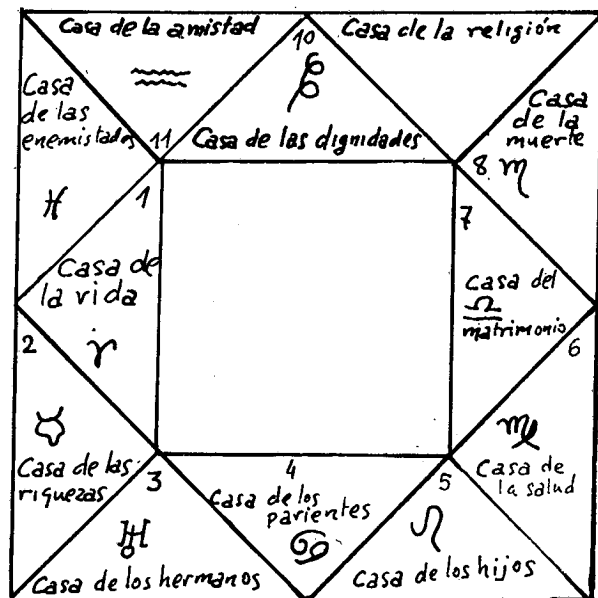 Casa de la amistad
10
Casa de la religión
Casa
de las
enemistades
11
Casa de las dignidades
Casa
de la
muerte
8
1
7
Casa de
la vida
Casa del
matrimonio
2
6
Casa de las
riquezas
3
4
Casa de los
parientes
5
Casa de
la salud
Casa de los hermanos
Casa de los hijos